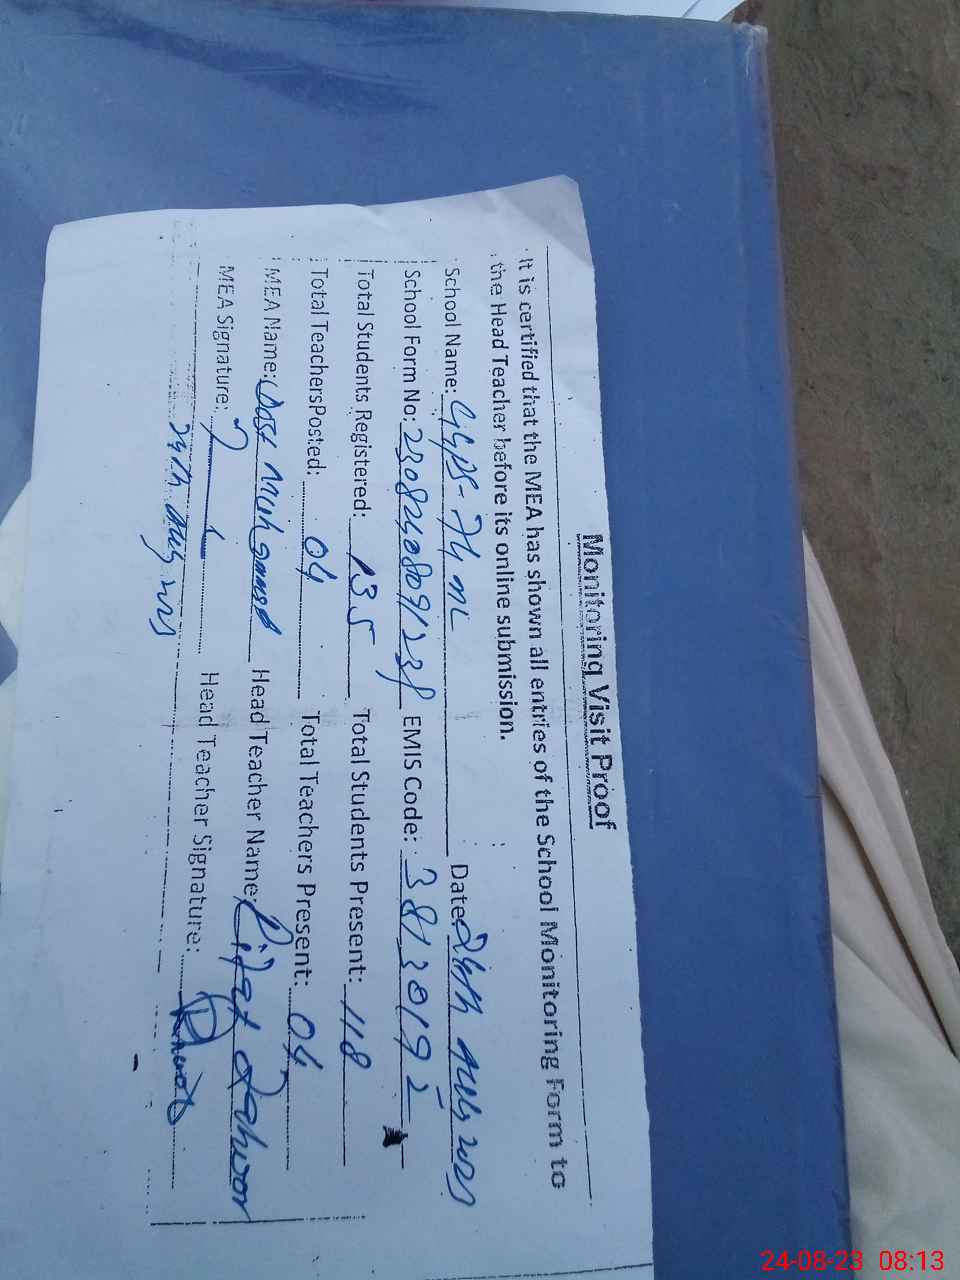 Monitoring Visit Proof
It is certified that the MEA has shown all entries of the School Monitoring Form to
the Head Teacher before its online submission.
School Name: GGPS-74 ML Date: 24th Aug 2023
School Form No: EMIS Code: 38130192
Total Students Registered: 135 Total Students Present: 118
Total TeachersPosted: 04 Total Teachers Present: 04
MEA Name: Dost Muhammad Head Teacher Name: Riffat
MEA Signature: Head Teacher Signature:
24th Aug 2023
24-08-23 08:13